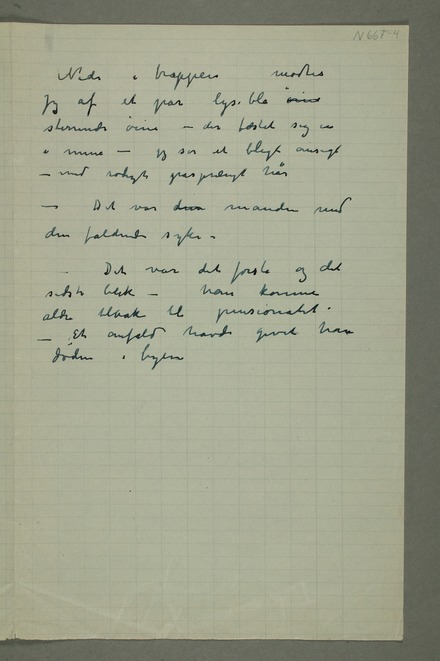 N 667-4
Nede i trappen mødtes
jeg af et par lyseblå øine
stirrende øine – der fæstet sig in
i mine – jeg så et blegt ansigt
– med rødligt gråsprængt hår
– Det var den manden med
den faldende syke –
– Det var det første og det
sidste blik – han komme
aldri tilbak til pensionatet.
– Et anfald havde givet ham
døden i byen